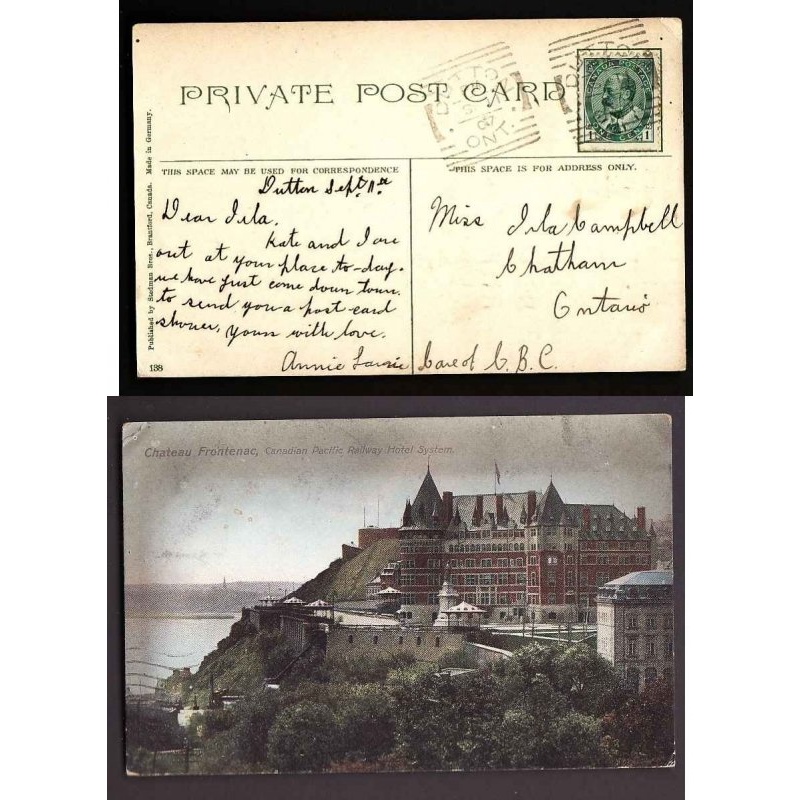 PRIVATE POST CARD
CANADA POSTAGE
1 1
DUTTON
ONT.
THIS SPACE MAY BE USED FOR CORRESPONDENCE
THIS SPACE IS FOR ADDRESS ONLY.
Published by Stedman Bros., Brantford, Canada. Made in Germany.
Dutton Sept.
Dear Ila.
Kate and I are
out at your place to-day.
we have just come down town
to send you a post card
shower, yours with love.
Annie Laurie
Miss Ila Campbell
Chatham
Ontario
Care of C. B. C.
138
Chateau Frontenac, Canadian Pacific Railway Hotel System.